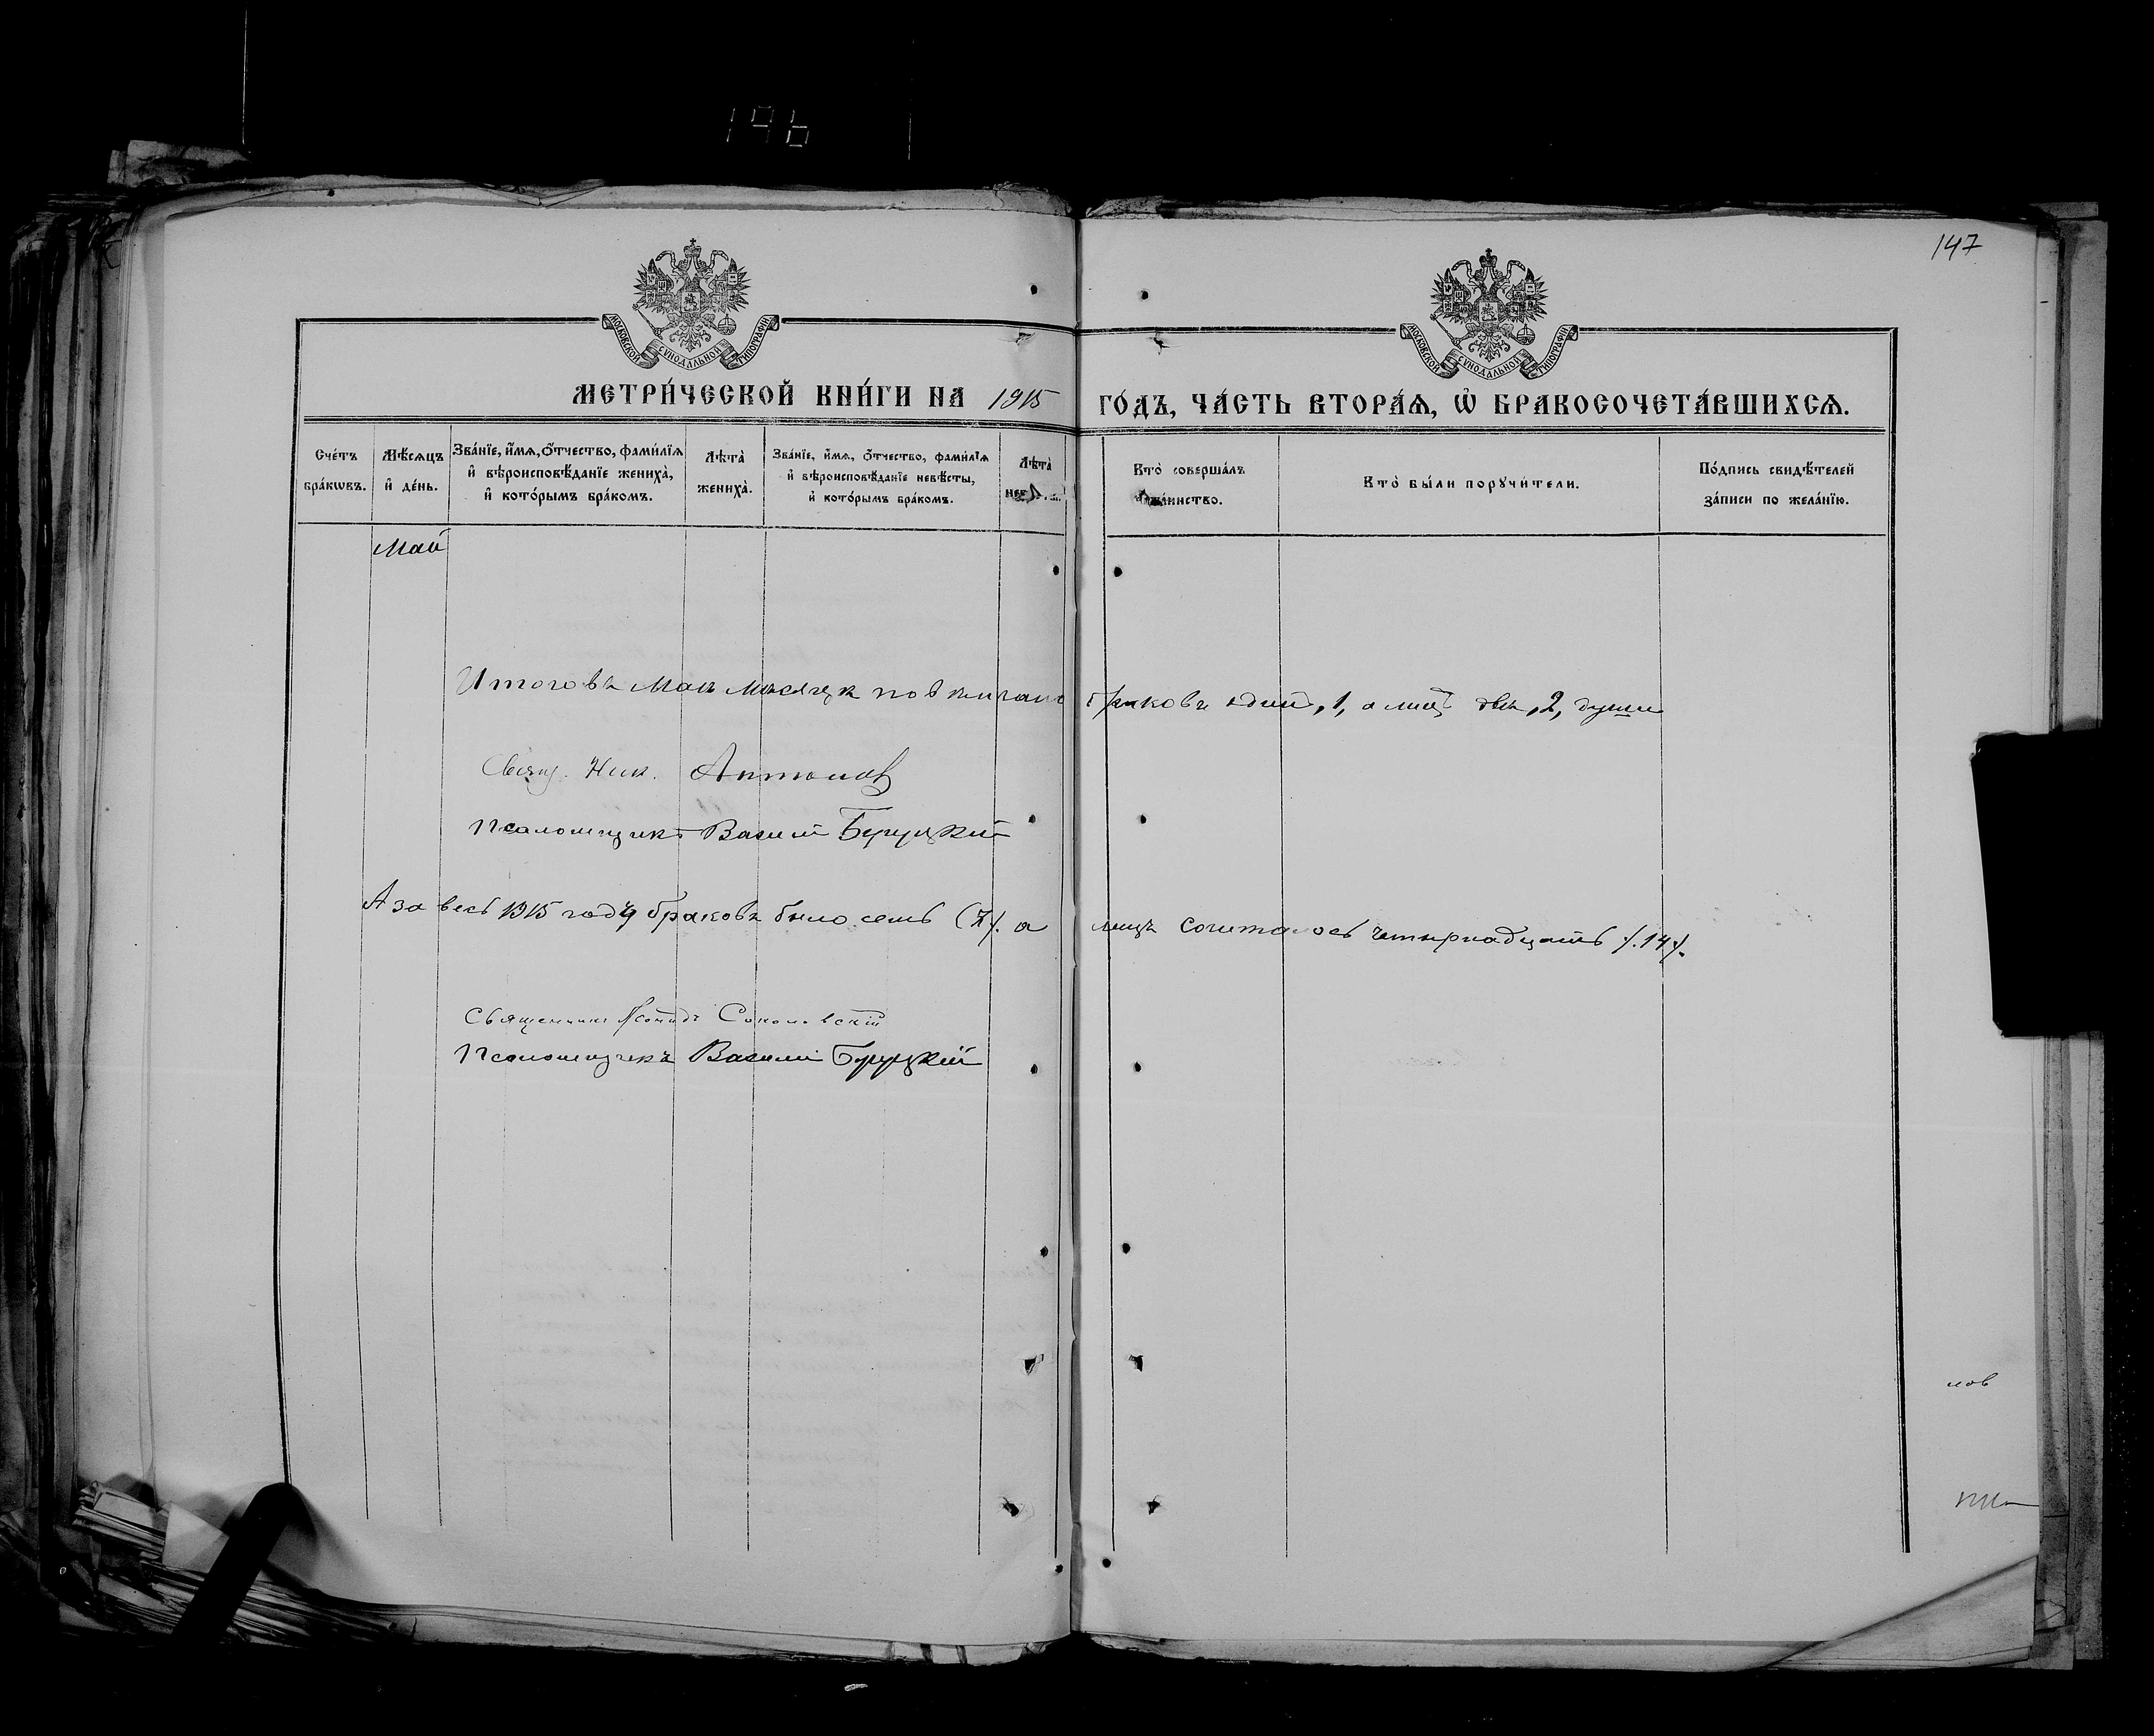 196
147
МОСКОВСКОЙ СУНОДАЛЬНОЙ ТИПОГРАФІИ
МОСКОВСКОЙ СУНОДАЛЬНОЙ ТИПОГРАФІИ
МЕТРИ́ЧЕСКОЙ КНИ́ГИ НА 1915 ГО́ДЪ, ЧА́СТЬ ВТОРА́Ѧ, Ѡ҆ БРАКОСОЧЕТА́ВШИХСѦ.
Сче́тъ бра́кѡвъ.
Мѣ́сѧцъ и҆ де́нь.
Зва́нїе, и҆́мѧ, ѻ҆́тчество, фами́лїѧ и҆ вѣроисповѣ́данїе жениха̀, и҆ кото́рымъ бра́комъ.
Лѣта̀ жениха̀.
Зва́нїе, и҆́мѧ, ѻ҆́тчество, фами́лїѧ и҆ вѣроисповѣ́данїе невѣ́сты, и҆ кото́рымъ бра́комъ.
Лѣта̀
Кто̀ соверша́лъ та́инство.
Кто̀ бы́ли порꙋчи́тели.
По́дпись свидѣ́телей за́писи по жела́нїю.
Май
Итого въ Маѣ мѣсяцѣ повѣнчано браковъ един, 1, а лицъ двѣ, 2, души
Свящ. Ник. Антонов
Псаломщикъ Василий Буруцкий
А за весь 1915 годъ браковъ было семь (7). а лицъ сочеталось четырнадцать /.14/.
Священникъ Леонидъ Соколовскій
Псаломщикъ Василий Буруцкий
лов